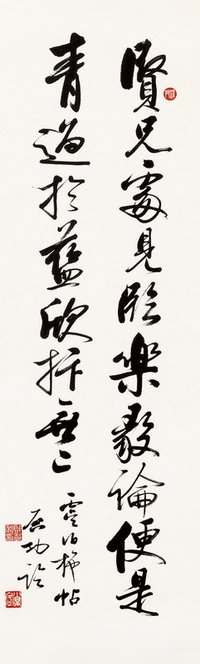 賢兄處見臨樂毅論便是
青過於藍欣抃無已
虞伯施帖
启功臨